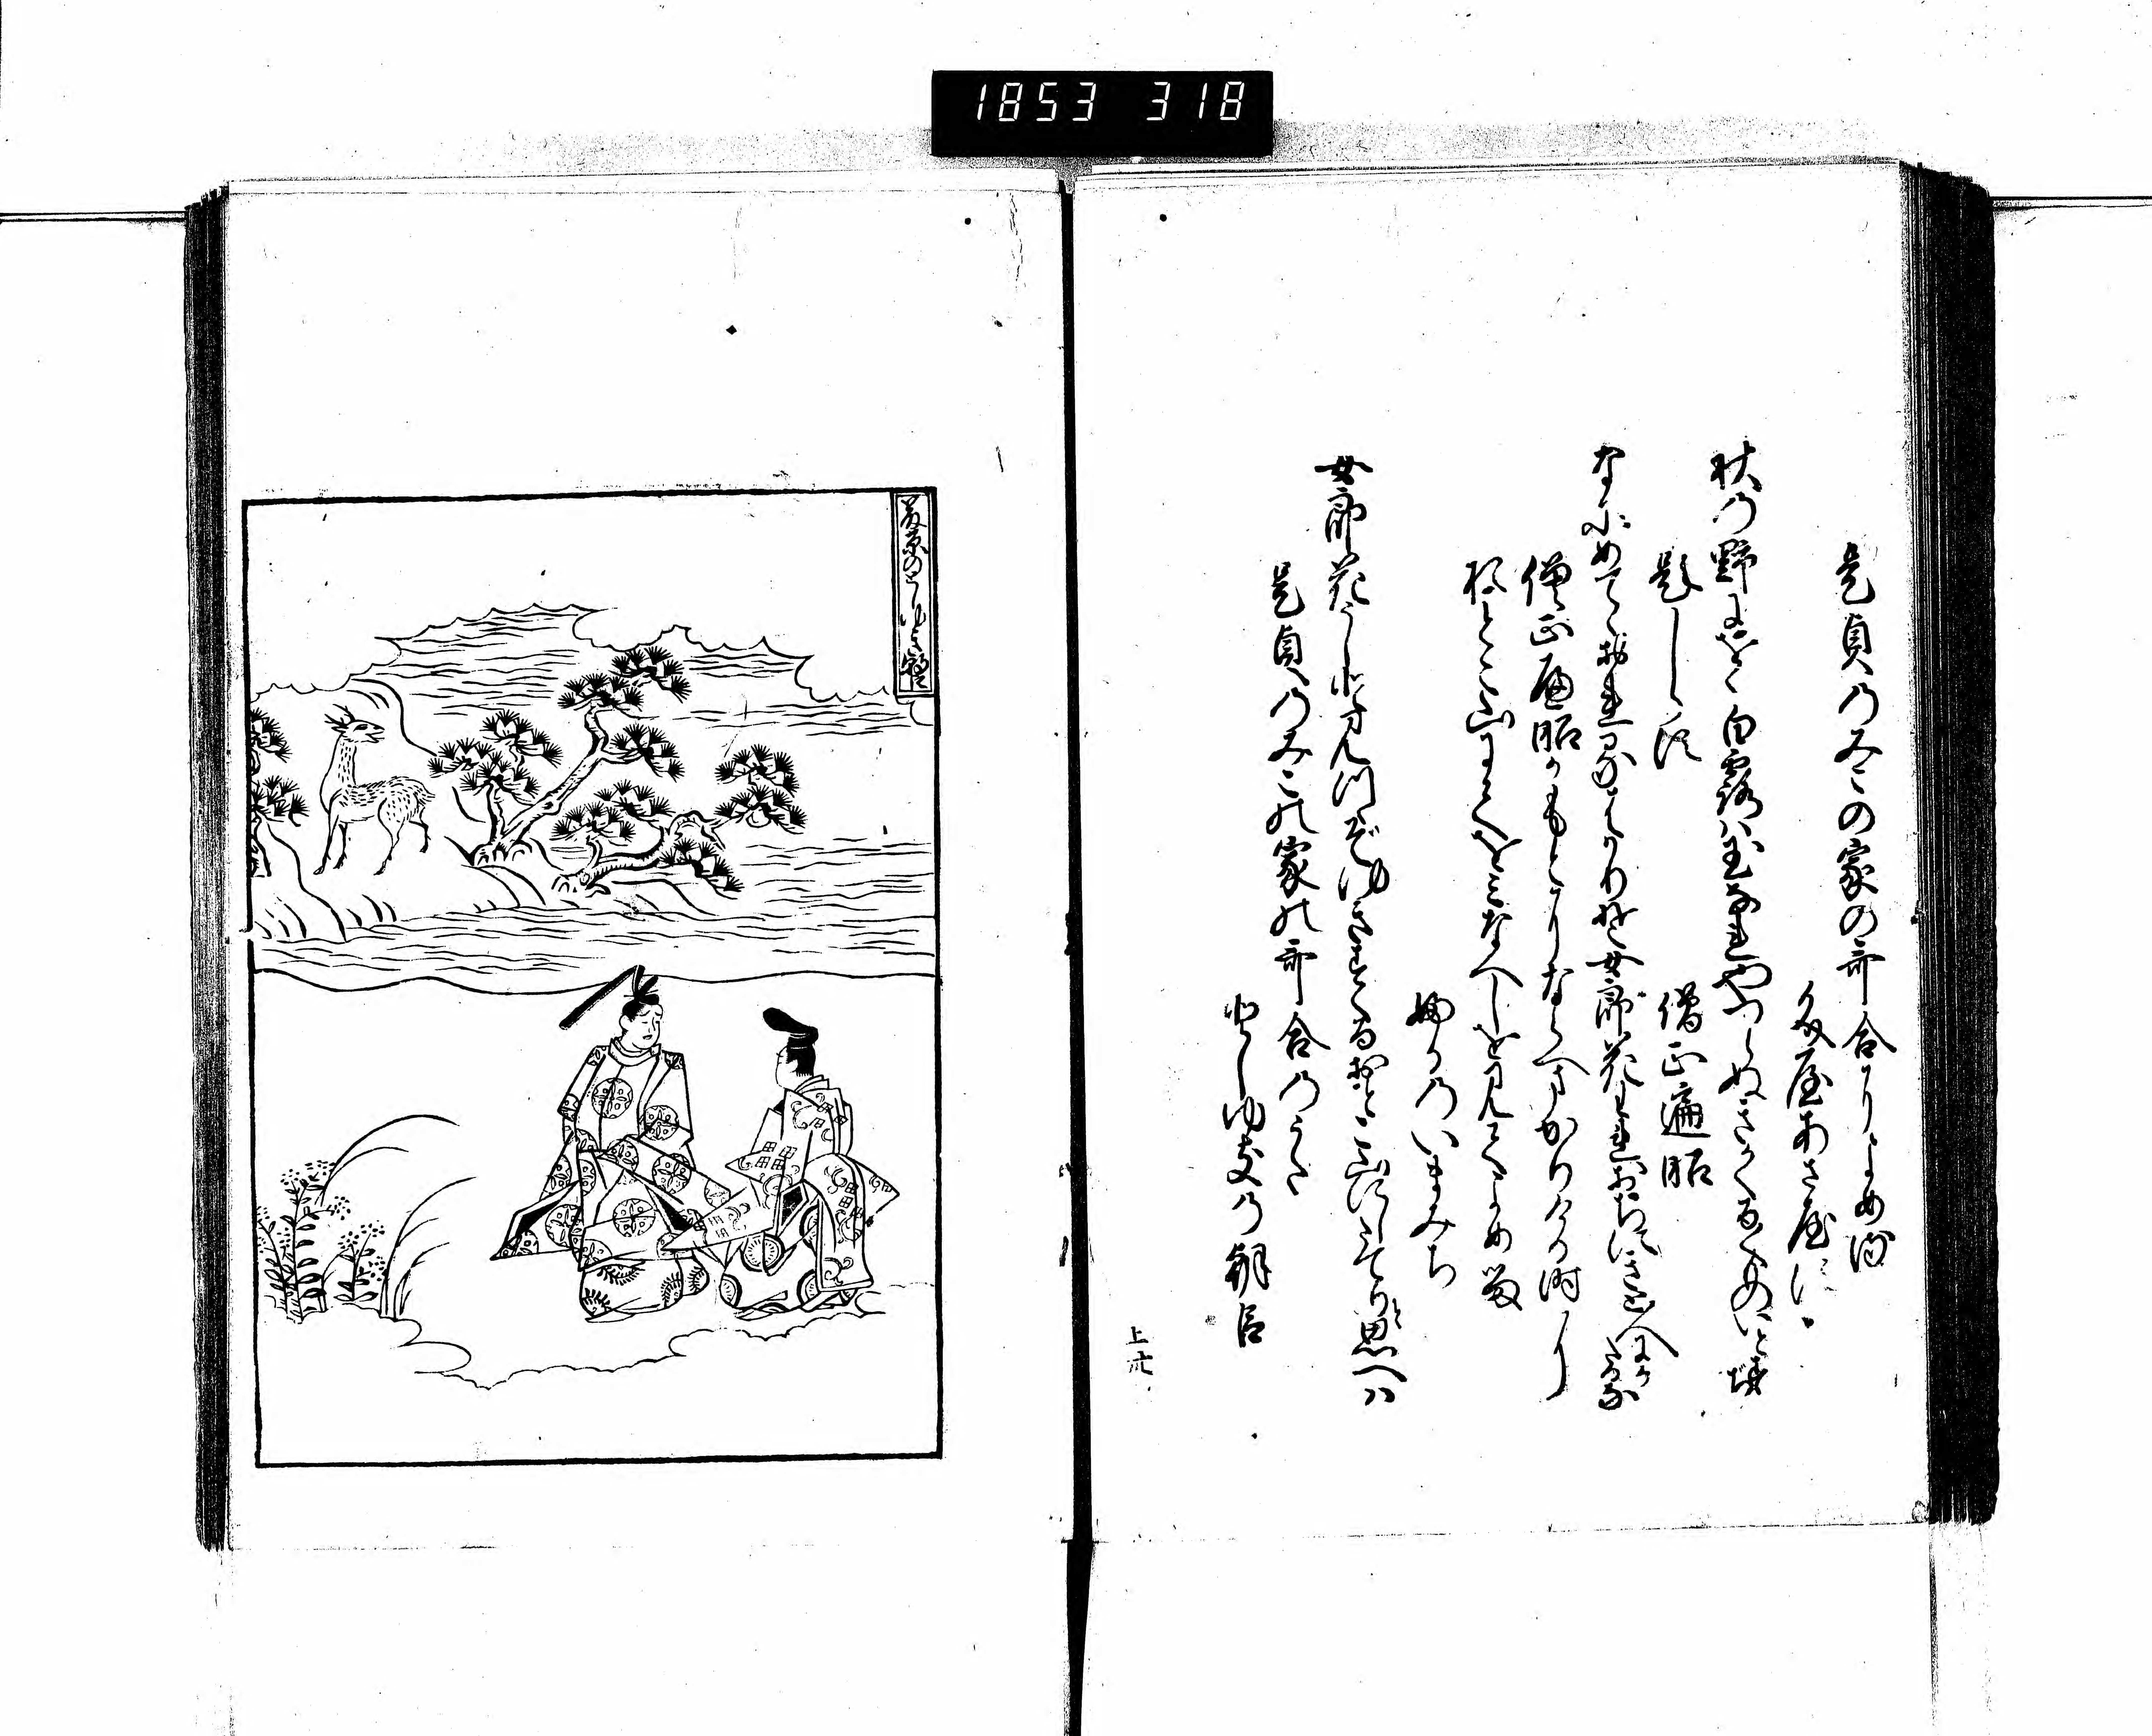 1853 318
是貞のみこの家の哥合によめる
文屋あさやす
秋の野にをく白露は玉なれやつらぬきかくるくものいと筋
題しらす
僧正遍昭
なにめてゝおれるはかりそ女郎花われおちにきと人にかたるな
僧正遍昭かもとにならへまかりける時に
おとこ山にてをみなへしを見てよめる
ふるのいまみち
女郎花うしと見つゝそゆきすくるおとこ山にしたてりと思へは
是貞のみこの家の哥合のうた
としゆきの朝臣
上